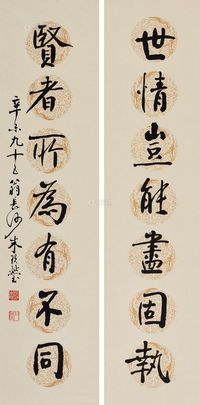 世情豈能盡固執
賢者所為有不同
辛未九十三翁長沙朱玖瑩